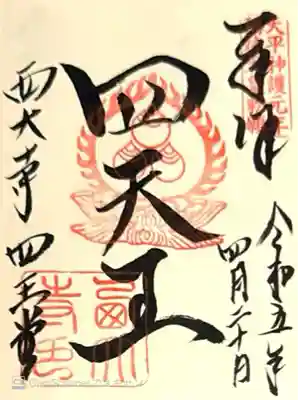 奉拝
天平神護元年
令和五年
四月二十日
四天王
西大寺 四王堂